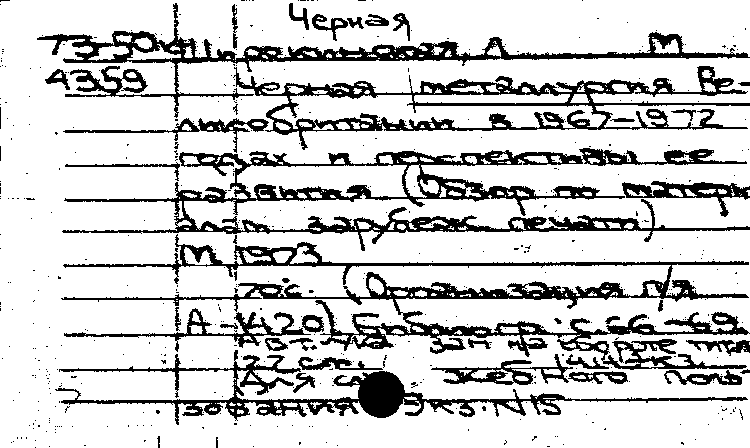 Черная
73-50 Широкинская, Л М
4359 Черная металлургия Ве-
ликобритании в 1967-1972
годах и перспективы ее
развития (Обзор по матери-
алам зарубеж. печати).
М. 1973
70 с. (Организация п/я
А-1420). Библиогр: с. 66-69.
на обороте тит.
22 см.
Для служебного поль-
зования Экз. N 15